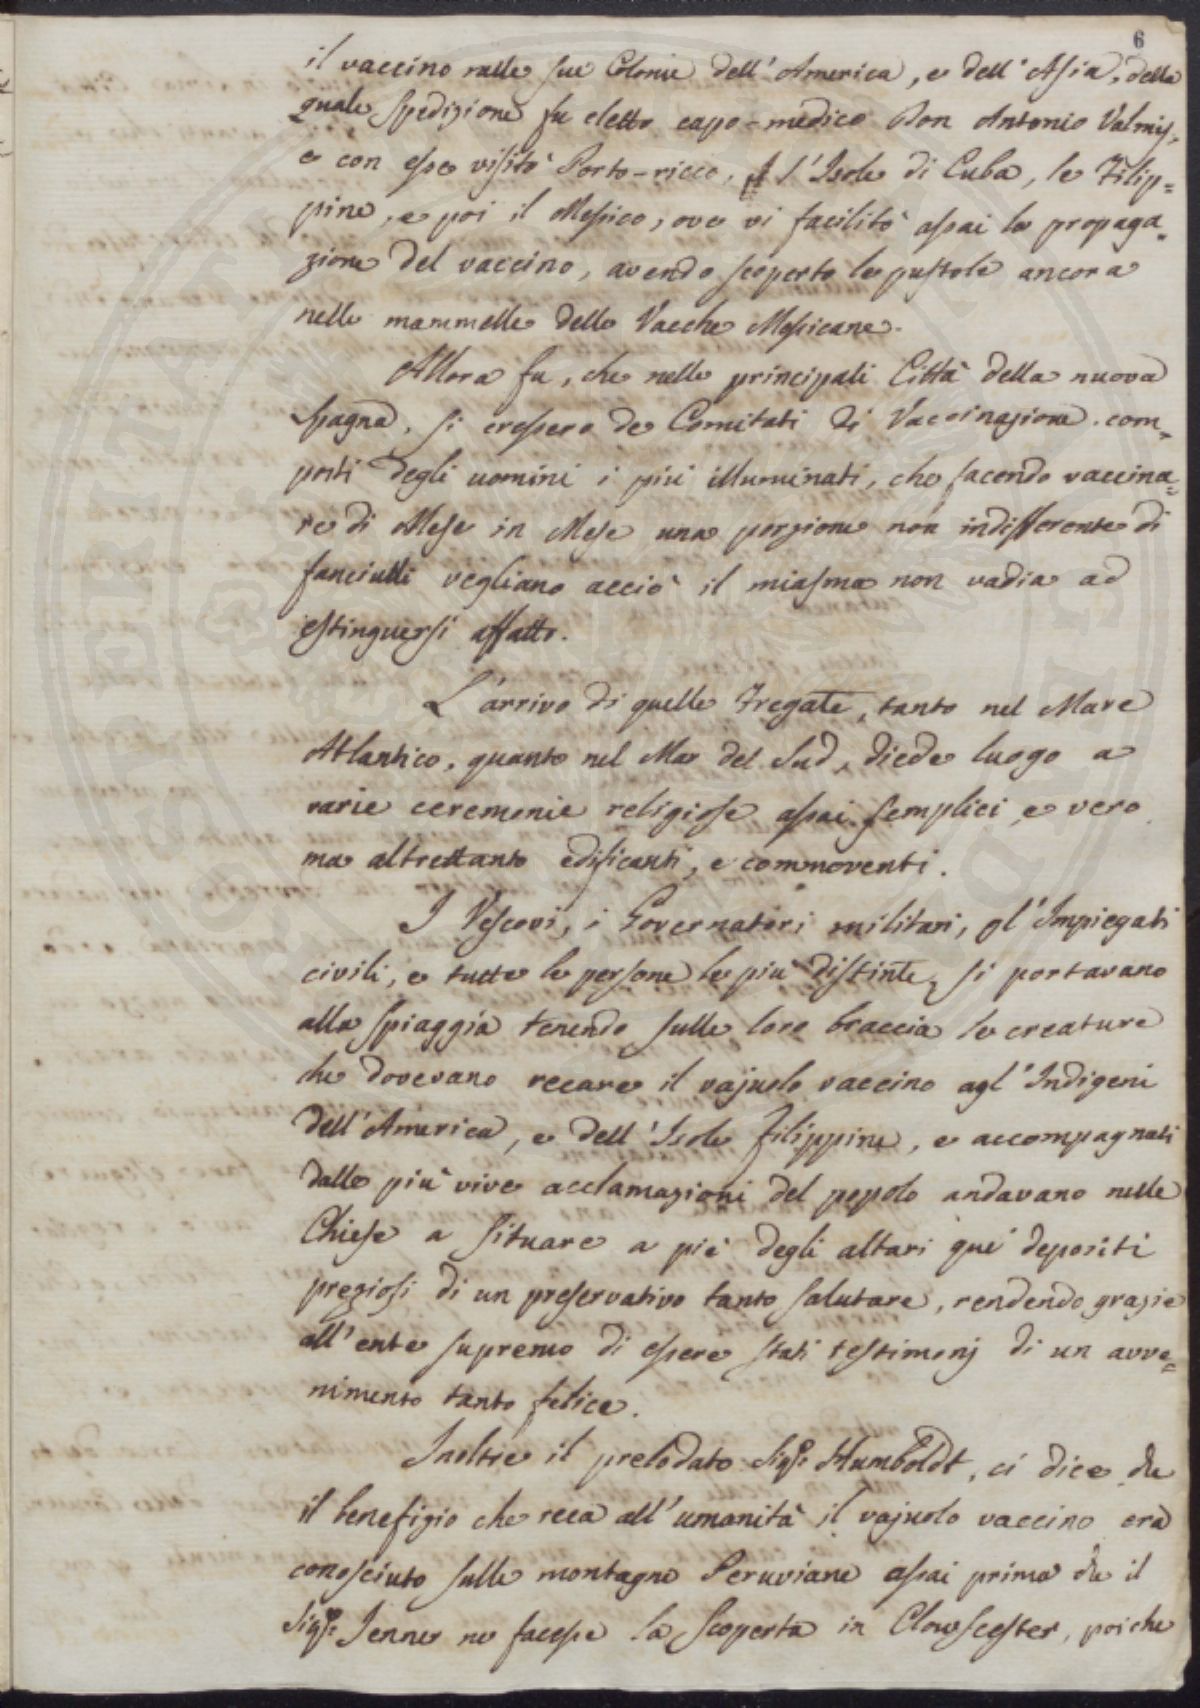 6
il vaccino nelle sue Colonie dell'America, e dell'Asia, della
quale spedizione fu eletto capo-medico Don Antonio Valmis,
e con esse visitò Porto-ricco, l'Isole di Cuba, le Filip=
pine, e poi il Messico, ove vi facilitò assai la propaga=
zione del vaccino, avendo scoperto le pustole ancora
nelle mammelle delle Vacche Messicane.
Allora fu, che nelle principali Città della nuova
Spagna, si eressero de Comitati di Vaccinazione. com=
posti degli uomini i più illuminati, che facendo vaccina=
re di Mese in Mese una porzione non indifferente di
fanciulli vegliano acciò il miasma non vadia ad
estinguersi affatto.
L'arrivo di quelle Fregate, tanto nel Mare
Atlantico, quanto nel Mar del Sud, diede luogo a
varie ceremonie religiose assai semplici e vero
ma altrettanto edificanti, e commoventi.
I Vescovi, i Governatori militari, gl'Impiegati
civili, e tutte le persone le più distinte, si portavano
alla spiaggia tenendo sulle loro braccia le creature
che dovevano recare il vajuolo vaccino agl'Indigeni
dell'America, e dell'Isole filippine, e accompagnati
dalle più vive acclamazioni del popolo andavano nelle
Chiese a situare a piè degli altari quei depositi
preziosi di un preservativo tanto salutare, rendendo grazie
all'ente supremo di essere stati testimonj di un avve=
nimento tanto felice.
Inoltre il prelodato Sigr. Humboldt, ci dice che
il benefizio che reca all'umanità il vajuolo vaccino era
conosciuto sulle montagne Peruviane assai prima che il
Sigr. Jenner ne facesse la scoperta in Clowscester, poiche